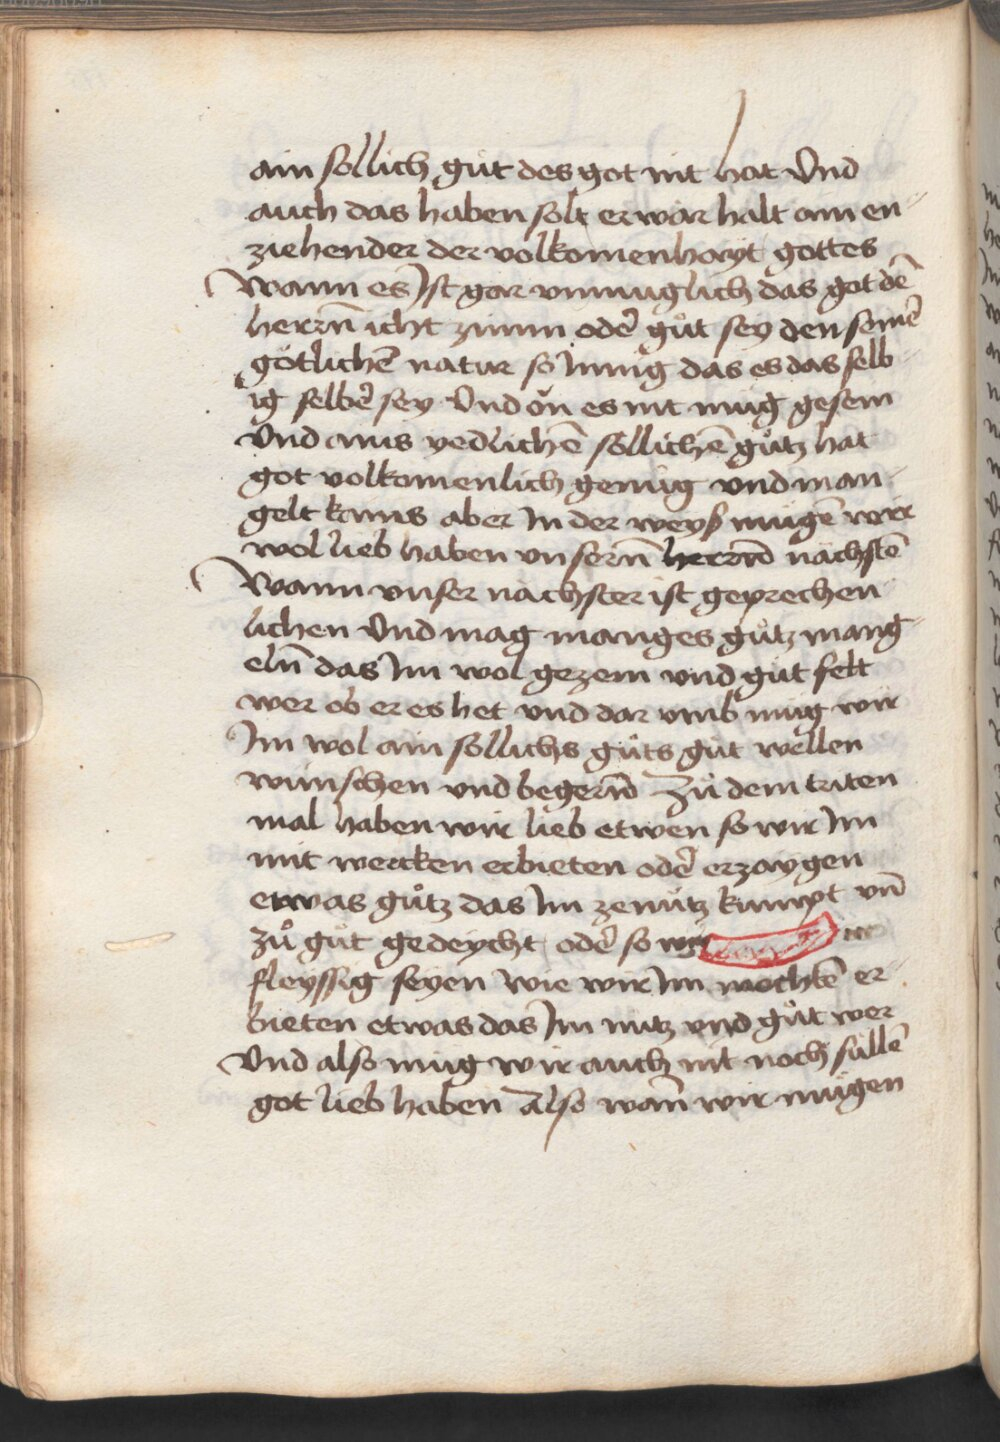 ain sollich gůt des got nit hat Vnd
auch das haben solt er war halt ain en-
ziehender der volkomenhayt gottes
Wann es Ist gar vnmuglich das got dē
herrñ icht zimm odē gůt sey den seinē
götlichē natur so Innig das es das selb-
ig selbē sey Vnd on es nit mug gesein
Vnd ains yedlichē sollichē gůtz hat
got volkomenlich genůg vnd man-
gelt kains aber In der weyß mugē wir
wol lieb haben vnserñ herrñ nächstē
Wann vnser nächster ist geprechen-
lichen Vnd mag manges gůtz mang-
elñ das Im wol gezem vnd gůt felt
wer ob er es het vnd dar vmb mug wir
Im wol ain sollichs gůts gůt wellen
wünschen vnd begerñ Zů dem triten
mal haben wir lieb etwen so wir Im
mit wercken erbieten odē erzaygen
etwas gůtz das Im ze nutz kumpt vñ
zů gůt gedeycht odē so wir
fleyssig seyen wie wir Im mochtē er-
bieten etwas das Im nutz vnd gůt wer
Vnd also mug wir auch nit noch sullē
got lieb haben Also wañ wir mugen